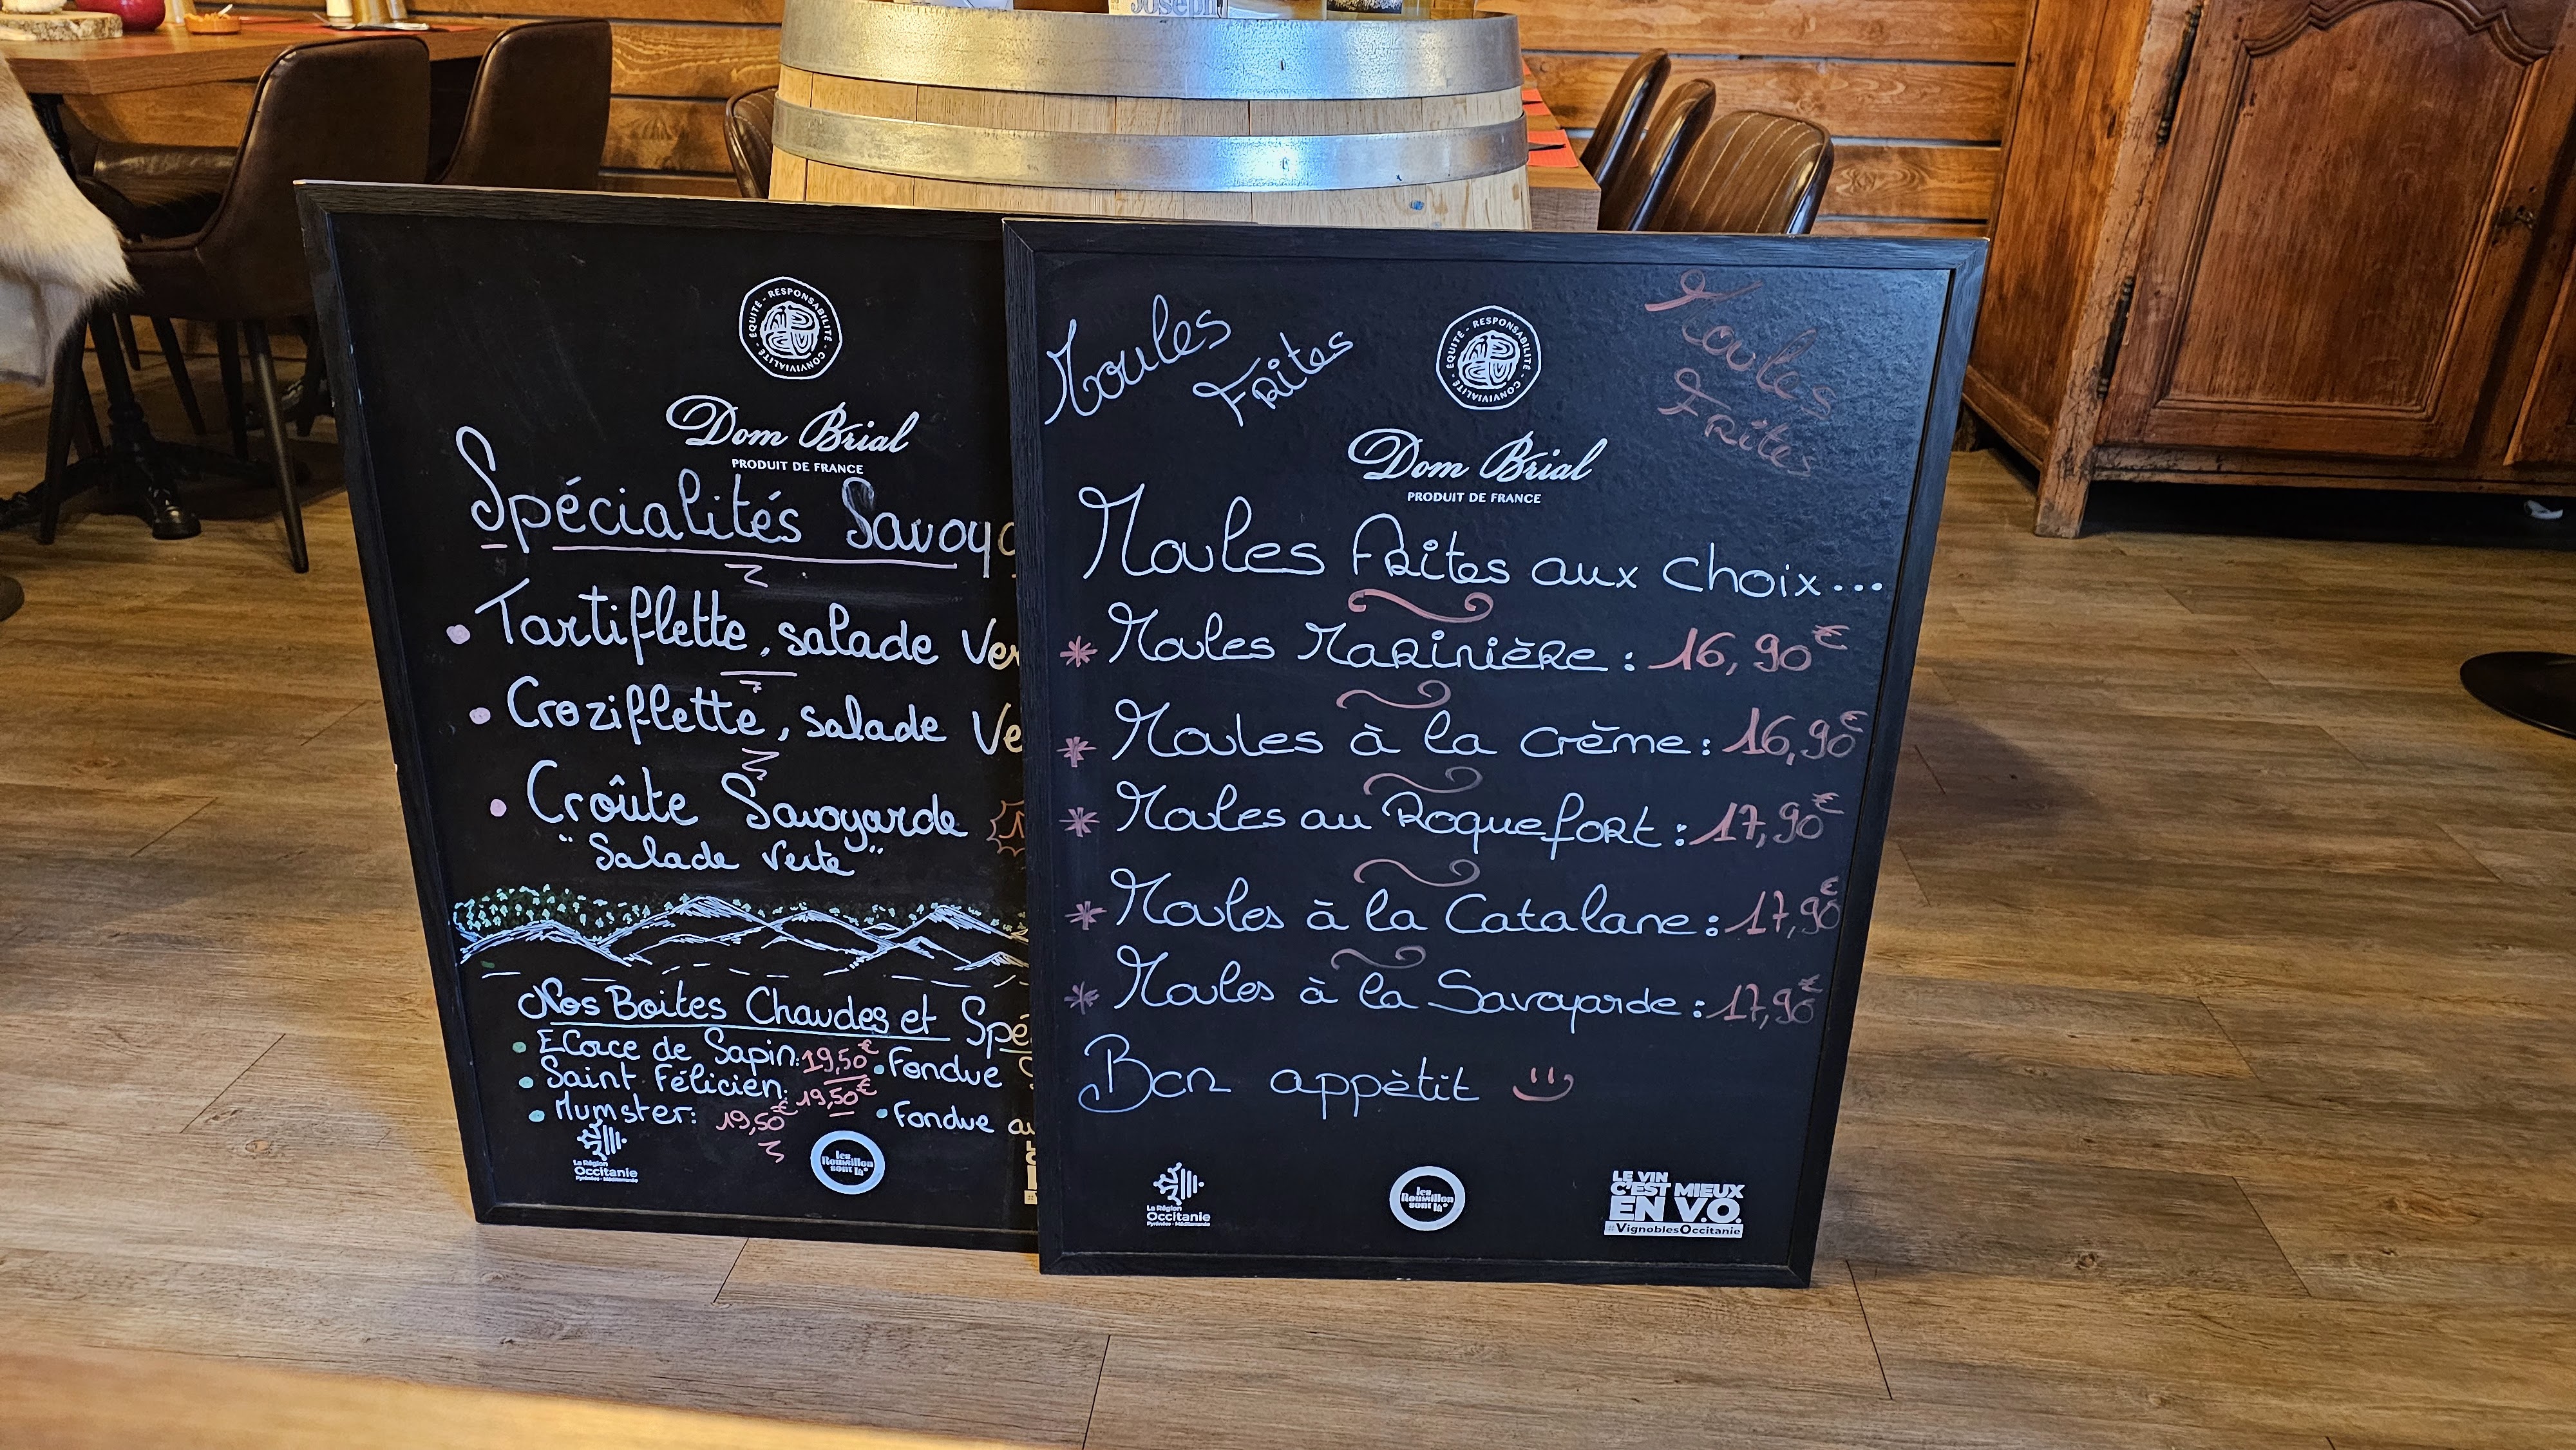 Joseph
ÉQUITÉ - RESPONSABILITÉ - CONVIVIALITÉ -
Dom Brial
PRODUIT DE FRANCE
Spécialités Savoya
Tartiflette, salade Ver
Croziflette, salade Ve
Croûte Savoyarde
"Salade Verte"
Nos Boites Chaudes et Spé
Ecorce de Sapin: 19,50€
Saint Félicien: 19,50€
Mumster: 19,50€
Fondue S
Fondue au
La Région
Occitanie
Pyrénées - Méditerranée
les
Roussillon
sont là
Moules
Frites
ÉQUITÉ - RESPONSABILITÉ - CONVIVIALITÉ -
Moules
Frites
Dom Brial
PRODUIT DE FRANCE
Moules Frites aux choix...
* Moules Marinière : 16,90€
* Moules à la crème : 16,90€
* Moules au Roquefort : 17,90€
* Moules à la Catalane : 17,90€
* Moules à la Savoyarde : 17,90€
Bon appètit
La Région
Occitanie
Pyrénées - Méditerranée
les
Roussillon
sont là
LE VIN
C'EST MIEUX
EN V.O.
#VignoblesOccitanie